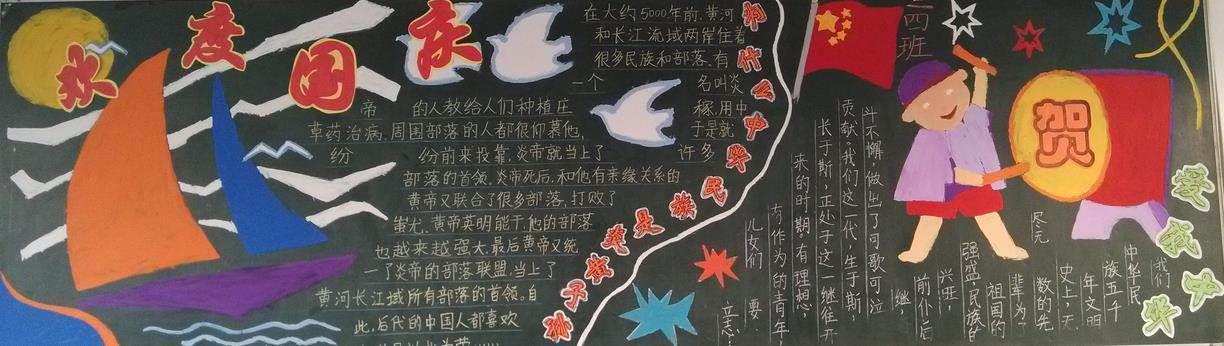 欢度国庆
在大约5000年前,黄河
和长江流域两岸住着
很多民族和部落,有
一个 名叫炎
帝 的人教给人们种植庄 稼,用中
草药治病,周围部落的人都很仰慕他, 于是就
纷 纷前来投靠,炎帝就当上了 许多
部落的首领,炎帝死后,和他有亲缘关系的
黄帝又联合了很多部落,打败了
蚩尤,黄帝英明能干,他的部落
也越来越强大,最后黄帝又统
一了炎帝的部落联盟,当上了
黄河长江域所有部落的首领。自
此,后代的中国人都喜欢
为什么中华民族是炎黄子孙
四班
贺
爱我中华
我们
中华民
族五千
年文明
史上,无
数的先
辈为了
祖国的
强盛,民族的
兴旺,
前仆后
继,
斗不懈,做出了可歌可泣
贡献。我们这一代,生于斯
长于斯,正处于这一继往开
来的时期。有理想,
有作为的青年
儿女们 要
立志